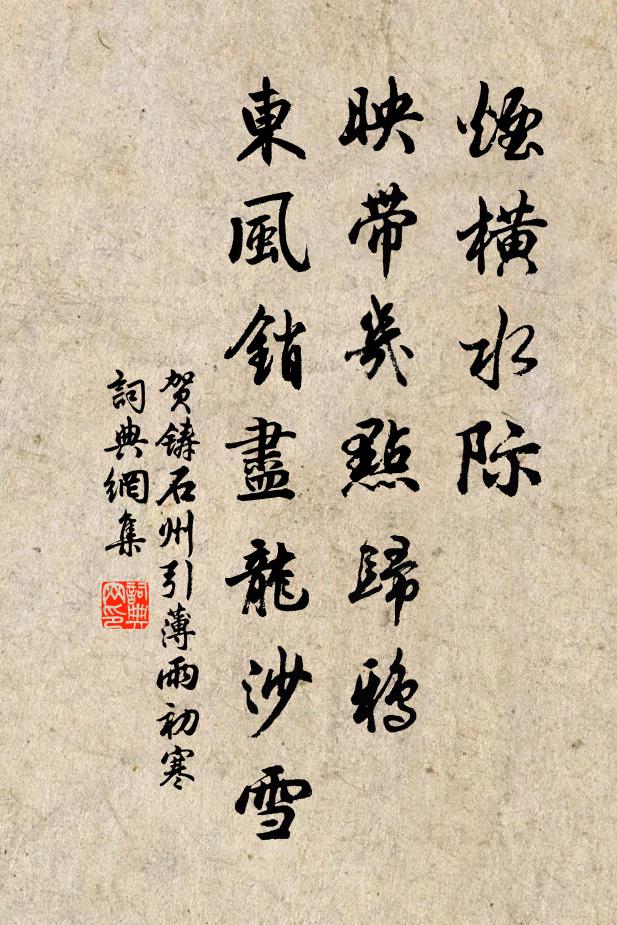 煙橫水际
映带幾點歸鴉
東風銷盡龍沙雪
贺鑄石州引薄雨初寒
詞典網集
詞典
网印